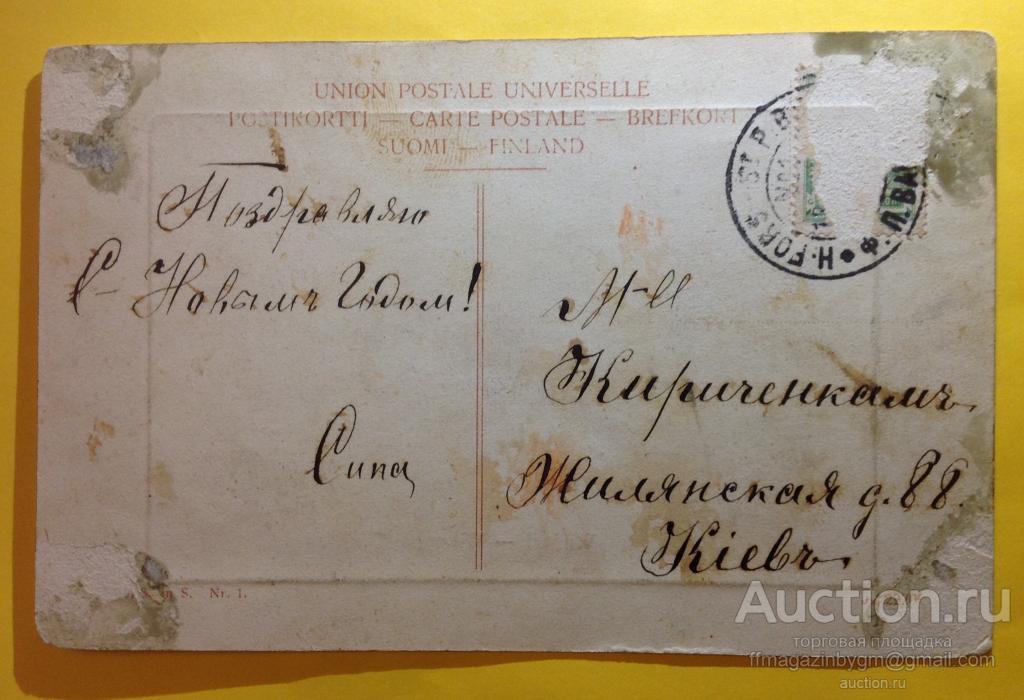 UNION POSTALE UNIVERSELLE
POSTIKORTTI — CARTE POSTALE — BREFKORT
SUOMI — FINLAND
Поздравляю
С- Новымъ Годом!
Сипа
М-ll
Кириченкамъ
Жилянская д. 88.
Кіевъ
S. Nr. 1.
Auction.ru
торговая площадка
ffmagazinbygm@gmail.com
auction.ru